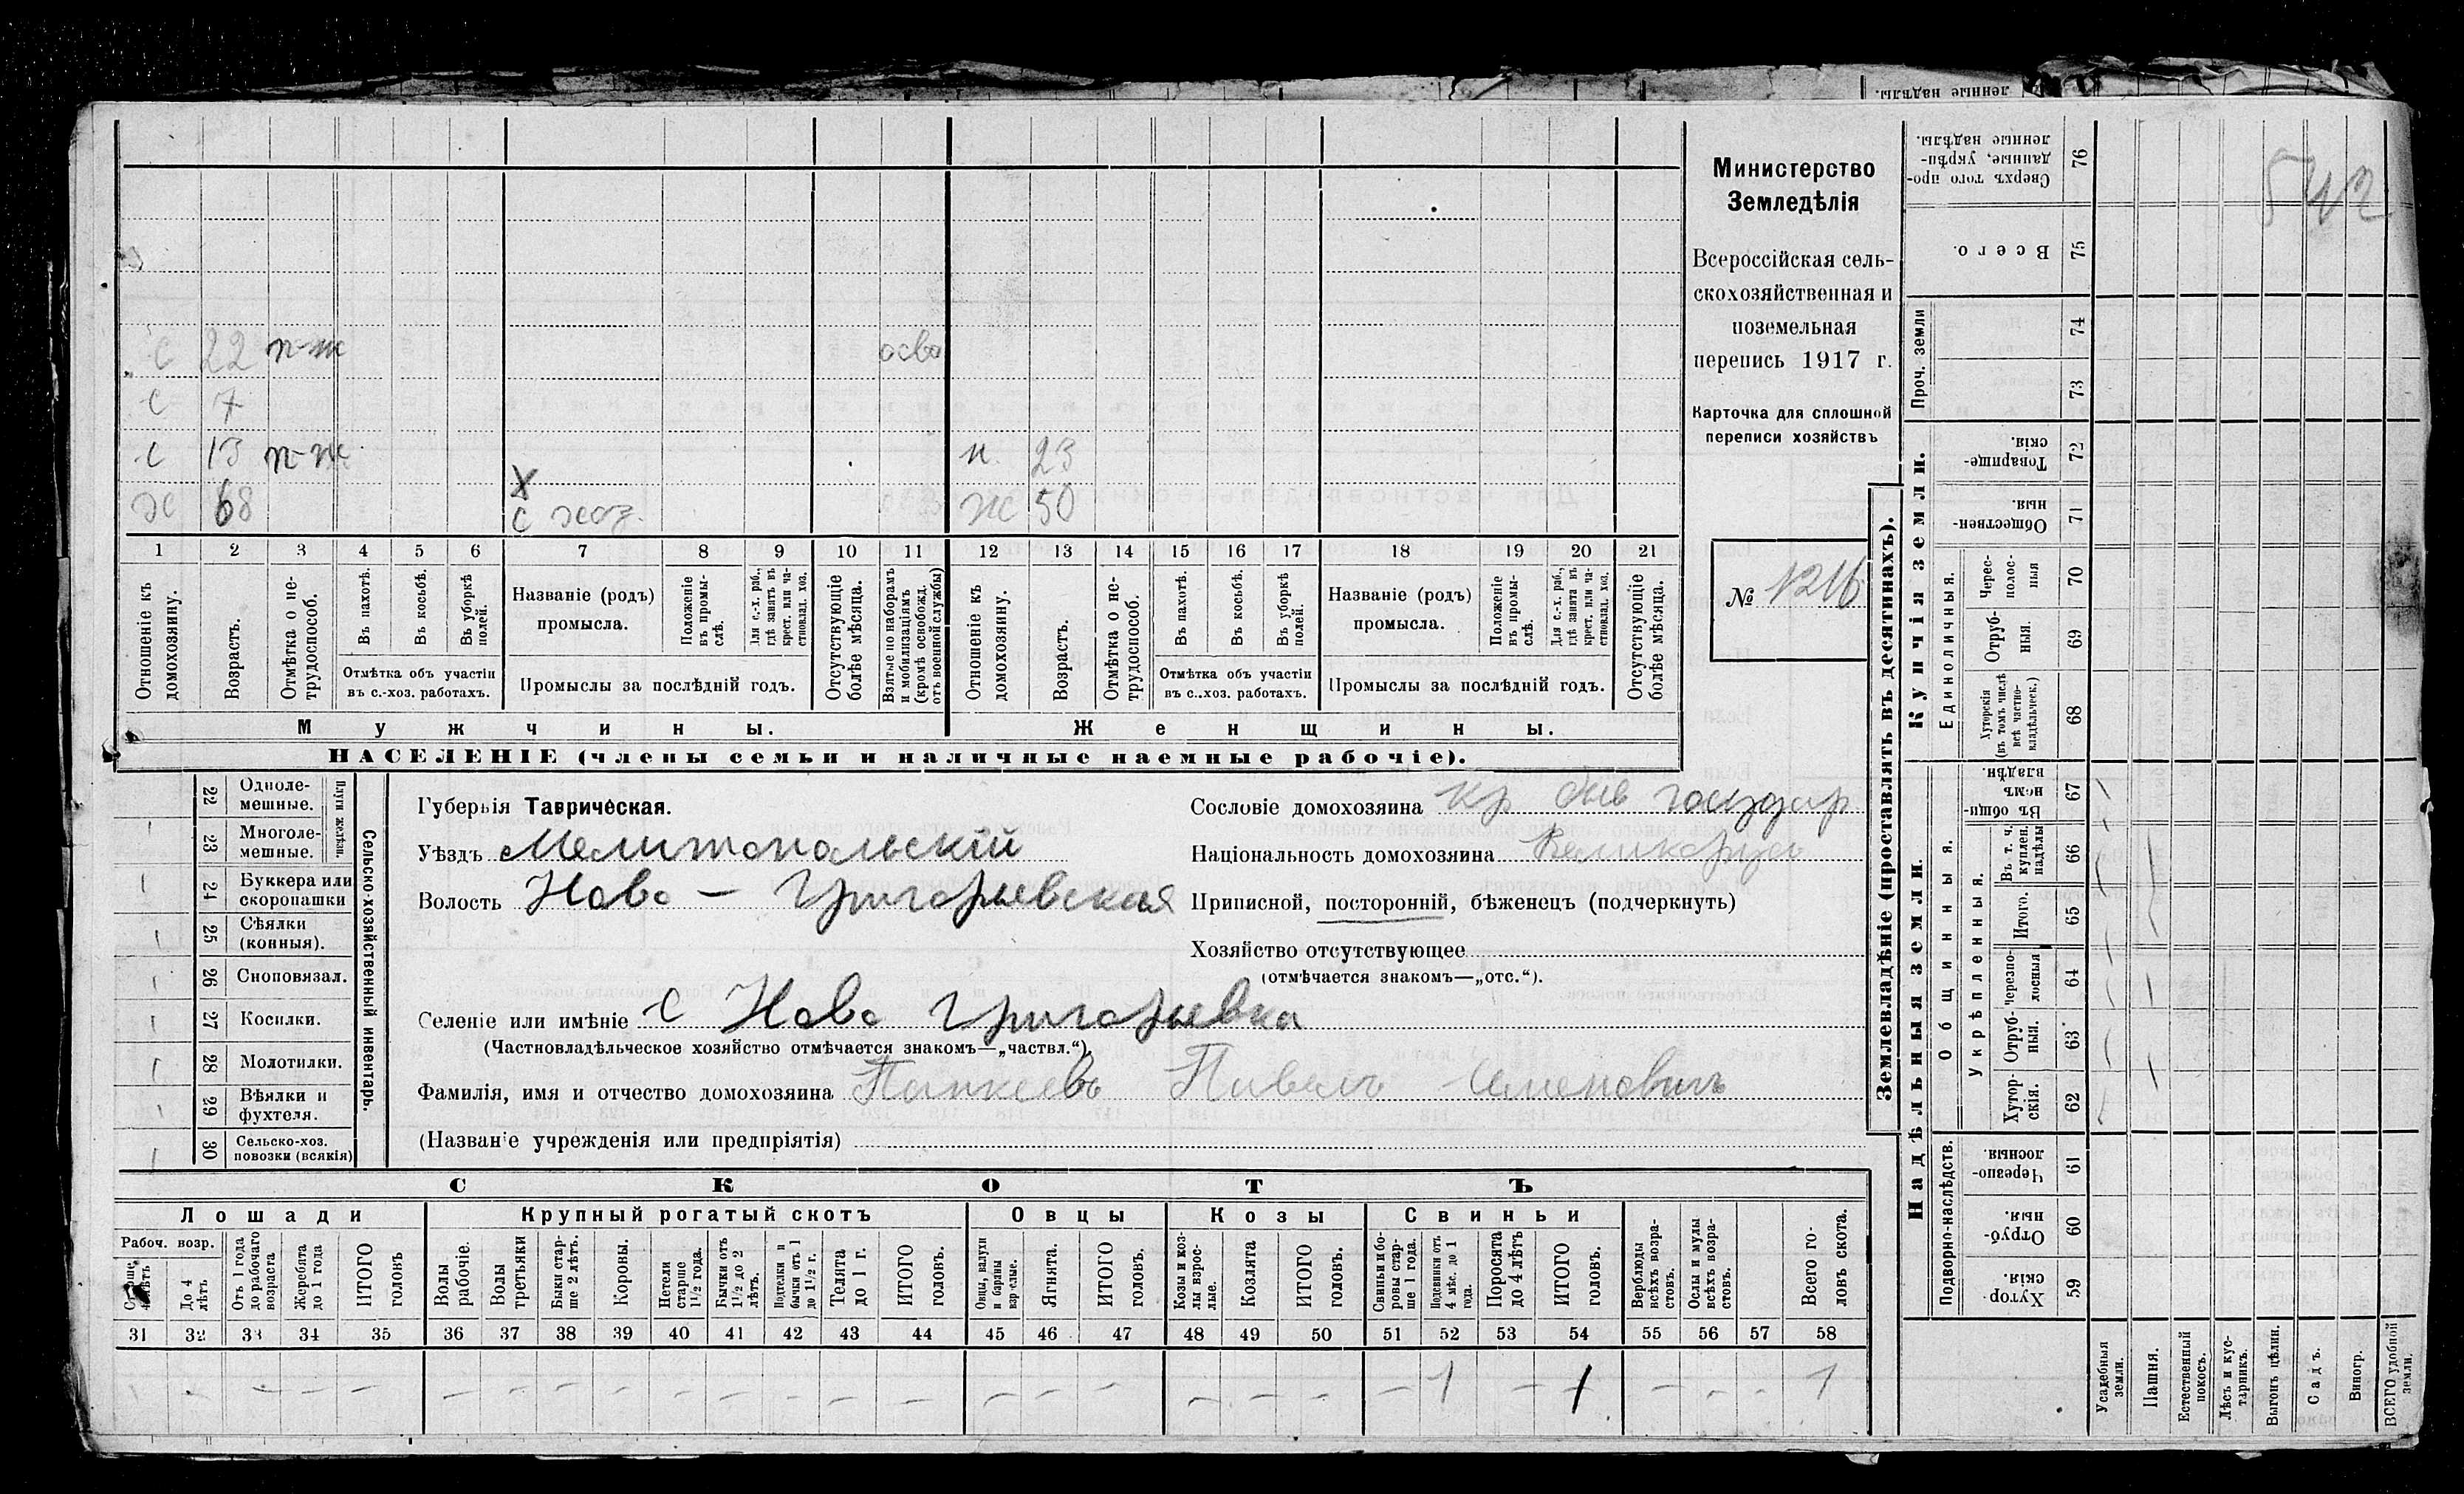 ленные надѣлы.
Министерство
Земледѣлія
Всероссійская сель-
скохозяйственная и
поземельная
перепись 1917 г.
Карточка для сплошной
переписи хозяйствъ
№ 1216
542
с 22 п-ж осво
с 7
с 13 п-ж н 23
х 68 с хоз. Ж 50
1 2 3 4 5 6 7 8 9 10 11 12 13 14 15 16 17 18 19 20 21
Отношеніе къ домохозяину.
Возрастъ.
Отмѣтка о не-трудоспособ.
Въ пахотѣ.
Въ косьбѣ.
Въ уборкѣ полей.
Отмѣтка объ участіи въ с.-хоз. работахъ.
Названіе (родъ) промысла.
Положеніе въ промы-слѣ.
Для с.-х. раб., гдѣ занятъ въ крест. или ча-стновлад. хоз.
Промыслы за послѣдній годъ.
Отсутствующіе болѣе мѣсяца.
Взятые по наборамъ и мобилизаціямъ (кромѣ освобожд. отъ военной службы)
Отношеніе къ домохозяину.
Возрастъ.
Отмѣтка о не-трудоспособ.
Въ пахотѣ.
Въ косьбѣ.
Въ уборкѣ полей.
Отмѣтка объ участіи въ с.-хоз. работахъ.
Названіе (родъ) промысла.
Положеніе въ промы-слѣ.
Для с.-х. раб., гдѣ занята въ крест. или ча-стновлад. хоз.
Промыслы за послѣдній годъ.
Отсутствующіе болѣе мѣсяца.
Мужчины. Женщины.
НАСЕЛЕНІЕ (члены семьи и наличные наемные рабочіе).
22 Одноле-мешные.
23 Многоле-мешные.
Плуги желѣзн.
24 Буккера или скоропашки
25 Сѣялки (конныя).
26 Сноповязал.
27 Косилки.
28 Молотилки.
29 Вѣялки и фухтеля.
30 Сельско-хоз. повозки (всякія)
Сельско-хозяйственный инвентарь.
Губернія Таврическая.
Уѣздъ Мелитопольскій
Волость Ново - Григорьевская
Сословіе домохозяина кр быв государ
Національность домохозяина Великорусъ
Приписной, посторонній, бѣженецъ (подчеркнуть)
Хозяйство отсутствующее
(отмѣчается знакомъ—„отс.“).
Селеніе или имѣніе с Ново Григорьевка
(Частновладѣльческое хозяйство отмѣчается знакомъ—„частвл.“)
Фамилія, имя и отчество домохозяина Павелъ Семеновичъ
(Названіе учрежденія или предпріятія)
СКОТЪ
Лошади Крупный рогатый скотъ Овцы Козы Свиньи
Рабоч. возр.
До 4 лѣтъ
Отъ 1 года до рабочаго возраста
Жеребята до 1 года
ИТОГО головъ
Волы рабочіе.
Волы третьяки
Быки стар-ше 2 лѣтъ.
Коровы.
Нетели старше 1½ года.
Бычки отъ 1½ до 2 лѣтъ.
Подтелки и бычки отъ 1 до 1½ г.
Телята до 1 г.
ИТОГО головъ.
Овцы, валухи и бараны взрослые.
Ягнята.
ИТОГО головъ.
Козы и коз-лы взрос-лые.
Козлята
ИТОГО головъ.
Свиньи и бо-ровы стар-ше 1 года.
Подсвинки отъ 4 мѣс. до 1 года.
Поросята до 4 лѣтъ
ИТОГО головъ.
Верблюды всѣхъ возра-стовъ.
Ослы и мулы всѣхъ возра-стовъ.
Всего го-ловъ скота.
31 32 33 34 35 36 37 38 39 40 41 42 43 44 45 46 47 48 49 50 51 52 53 54 55 56 57 58
— — — — — — — — — — — — — — — — — — — — 1 — 1 — — — 1
Землевладѣніе (проставлять въ десятинахъ).
Купчія земли.
Надѣльныя земли.
Проч. земли
Единоличныя.
Общинныя.
Укрѣпленныя.
Подворно-наслѣдств.
76 Сверхъ того про-данные, укрѣп-ленные надѣлы.
75 Всего.
74
73
72 Товарище-скія.
71 Обществен-ныя.
70 Черес-полос-ныя
69 Отруб-ныя.
68 Хуторскія (въ томъ числѣ всѣ частно-владѣльческ.)
67 Въ общи-номъ владѣн.
66 Въ т. ч. куплен. надѣлы
65 Итого.
64 Черезпо-лосныя
63 Отруб-ныя.
62 Хутор-скія.
61 Черезпо-лосныя
60 Отруб-ныя.
59 Хутор-скія.
Усадебныя земли.
Пашня.
Естественный покосъ.
Лѣсъ и кус-тарникъ.
Выгонъ цѣлин.
Садъ.
Виногр.
ВСЕГО удобной земли.